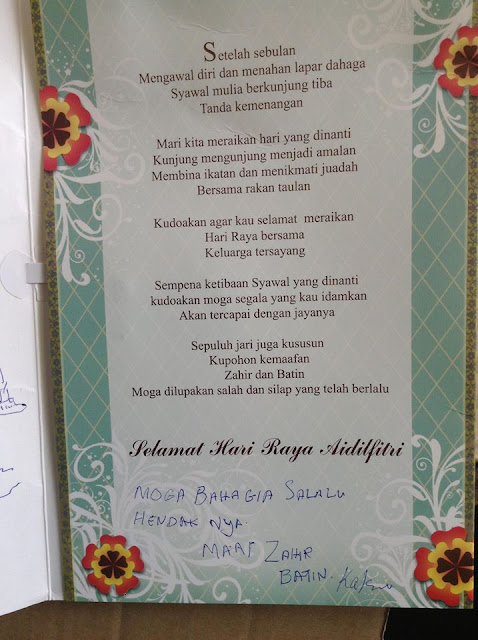 Setelah sebulan
Mengawal diri dan menahan lapar dahaga
Syawal mulia berkunjung tiba
Tanda kemenangan
Mari kita meraikan hari yang dinanti
Kunjung mengunjung menjadi amalan
Membina ikatan dan menikmati juadah
Bersama rakan taulan
Kudoakan agar kau selamat meraikan
Hari Raya bersama
Keluarga tersayang
Sempena ketibaan Syawal yang dinanti
kudoakan moga segala yang kau idamkan
Akan tercapai dengan jayanya
Sepuluh jari juga kususun
Kupohon kemaafan
Zahir dan Batin
Moga dilupakan salah dan silap yang telah berlalu
Selamat Hari Raya Aidilfitri
MOGA BAHAGIA SALALU
HENDAK NYA.
MAAF ZAHIR
BATIN.